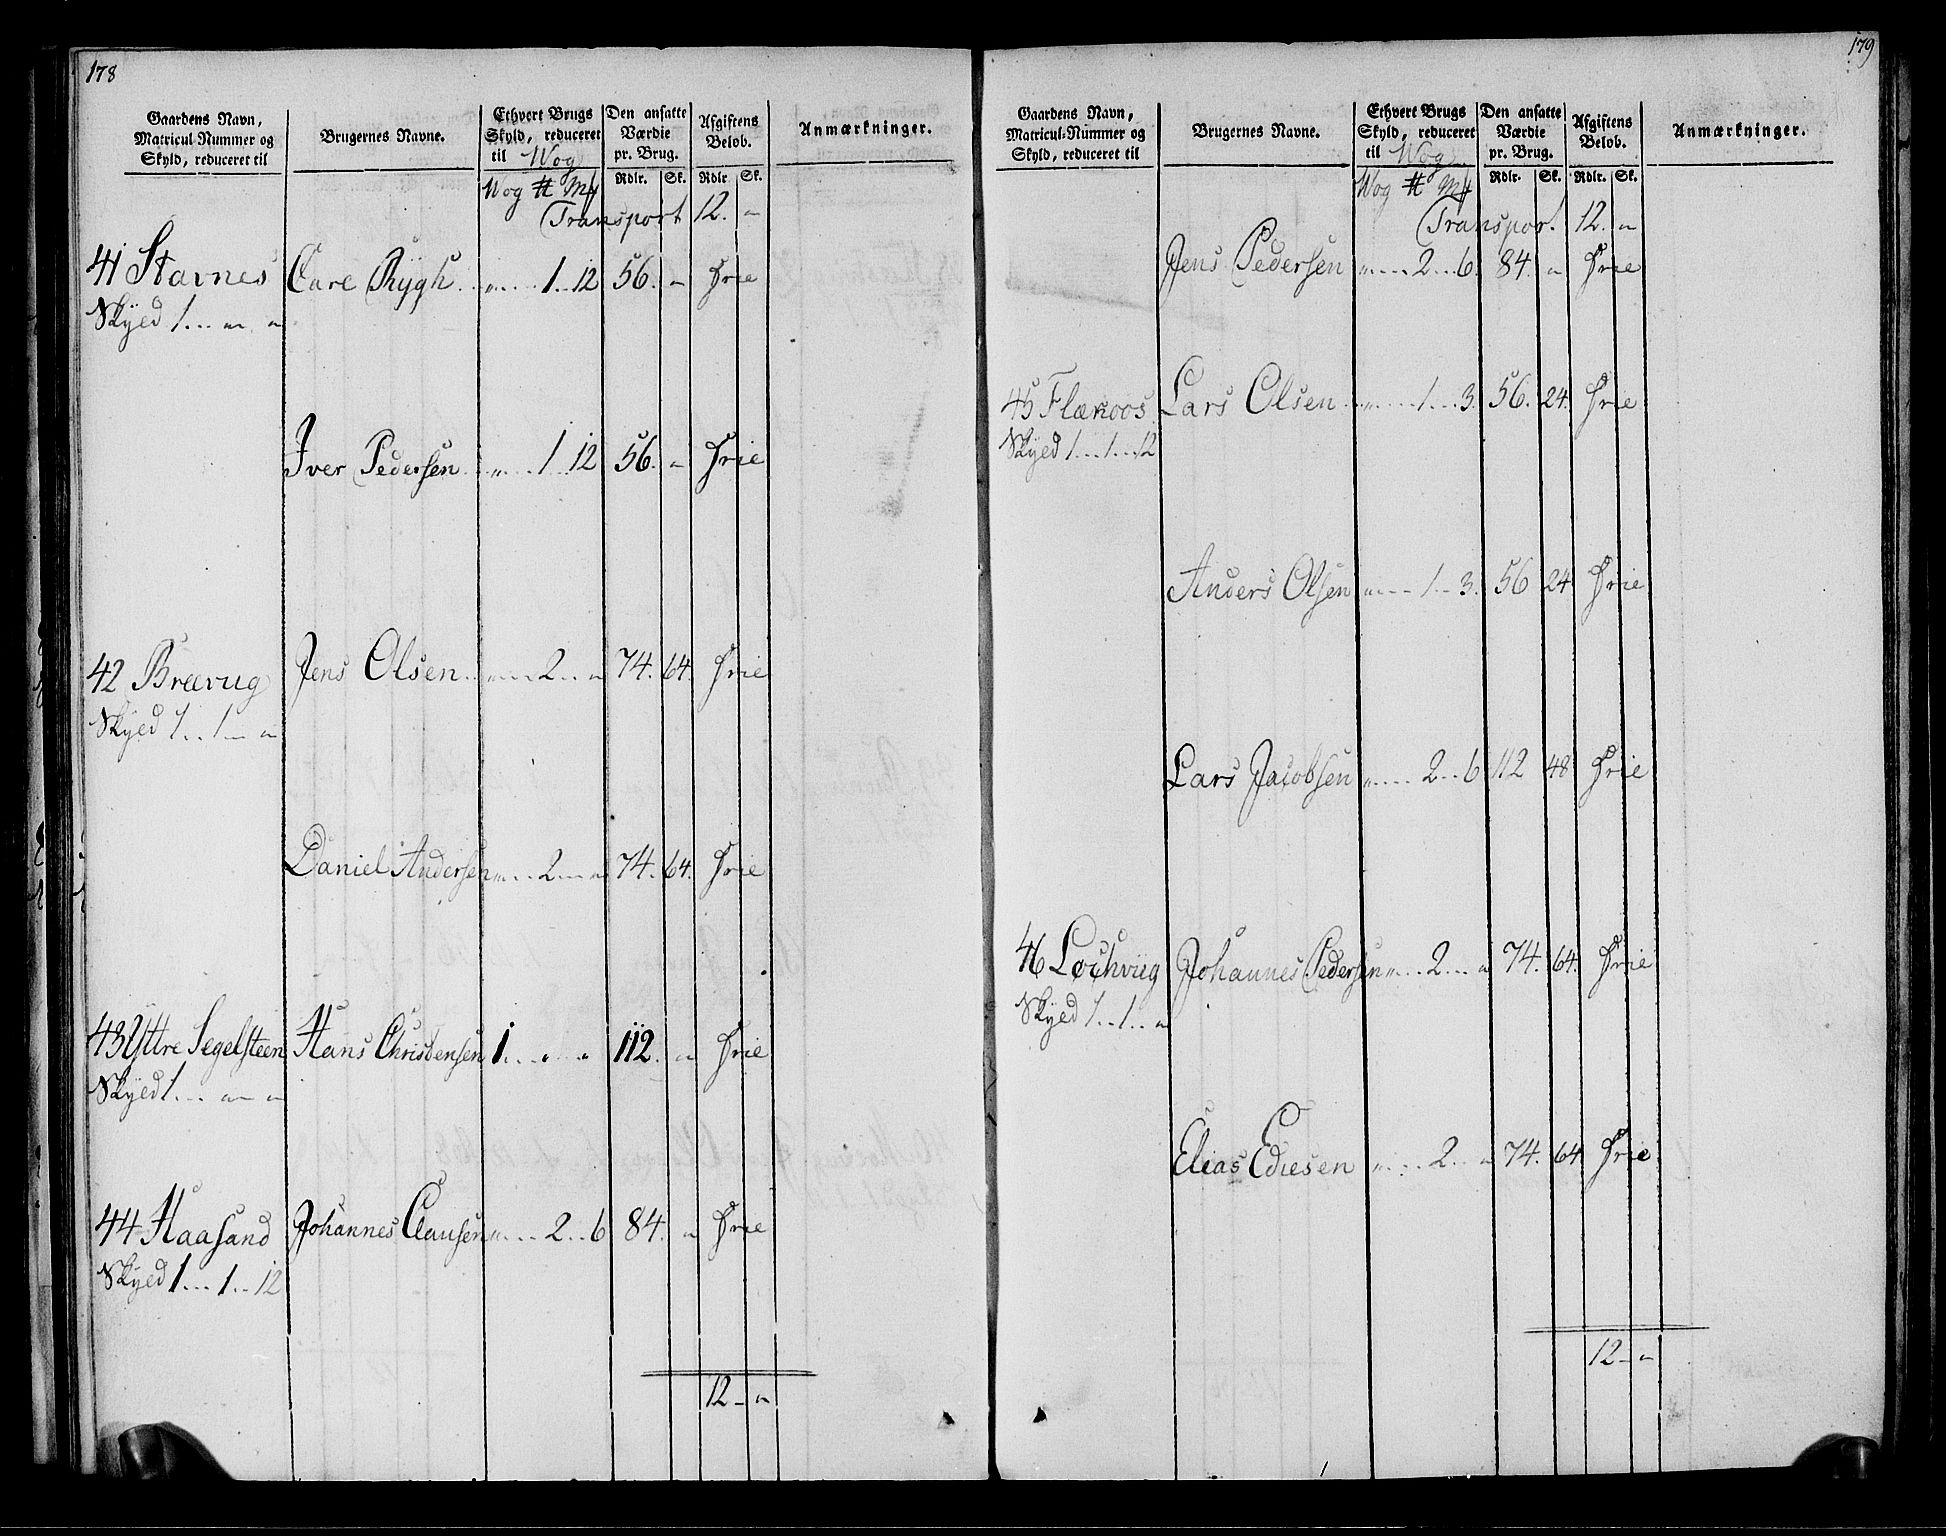 178
Gaardens Navn, Matricul Nummer og Skyld, reduceret til
Brugernes Navne.
Ethvert Brugs Skyld, reduceret til Wog
Den ansatte Værdie pr. Brug.
Afgiftens Beløb.
Anmærkninger.
Wog ℔ Mk Rdlr. Sk. Rdlr. Sk.
Transport 12. "
41 Stavnes Carl Rÿgh " 1 12 56. " Frie
Skÿld 1 " "
Iver Pedersen " 1 12 56. " Frie
42 Brævug Jens Olsen " 2 " 74. 64. Frie
Skÿld 1 1 "
Daniel Andersen " 2 " 74. 64. Frie
43 Yttre Segelsteen Hans Christensen 1 " " 112. " Frie
Skÿld 1 " "
44 Haasand Johannes Clausen " 2 6 84. " Frie
Skÿld 1 1 12
12 "
179
Gaardens Navn, Matricul-Nummer og Skyld, reduceret til
Brugernes Navne.
Ethvert Brugs Skyld, reduceret til Wog
Den ansatte Værdie pr. Brug.
Afgiftens Beløb.
Anmærkninger.
Wog ℔ Mk Rdlr. Sk. Rdlr. Sk.
Transport 12. "
Jens Pedersen " 2 6. 84. " Frie
45 Flækoos Lars Olsen " 1 3. 56. 24. Frie
Skÿld 1 1 12
Anders Olsen " 1 3. 56 24 Frie
Lars Jacobsen " 2 6 112 48 Frie
46 Lochviig Johannes Pedersen " 2 " 74. 64. Frie
Skÿld 1 1 "
Elias Ediesen " 2 " 74. 64 Frie
12 "